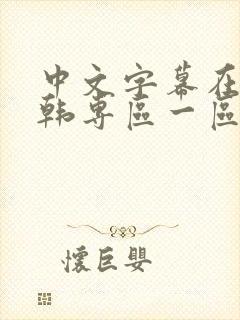 中文字幕在
韩专區一區
懷巨嬰